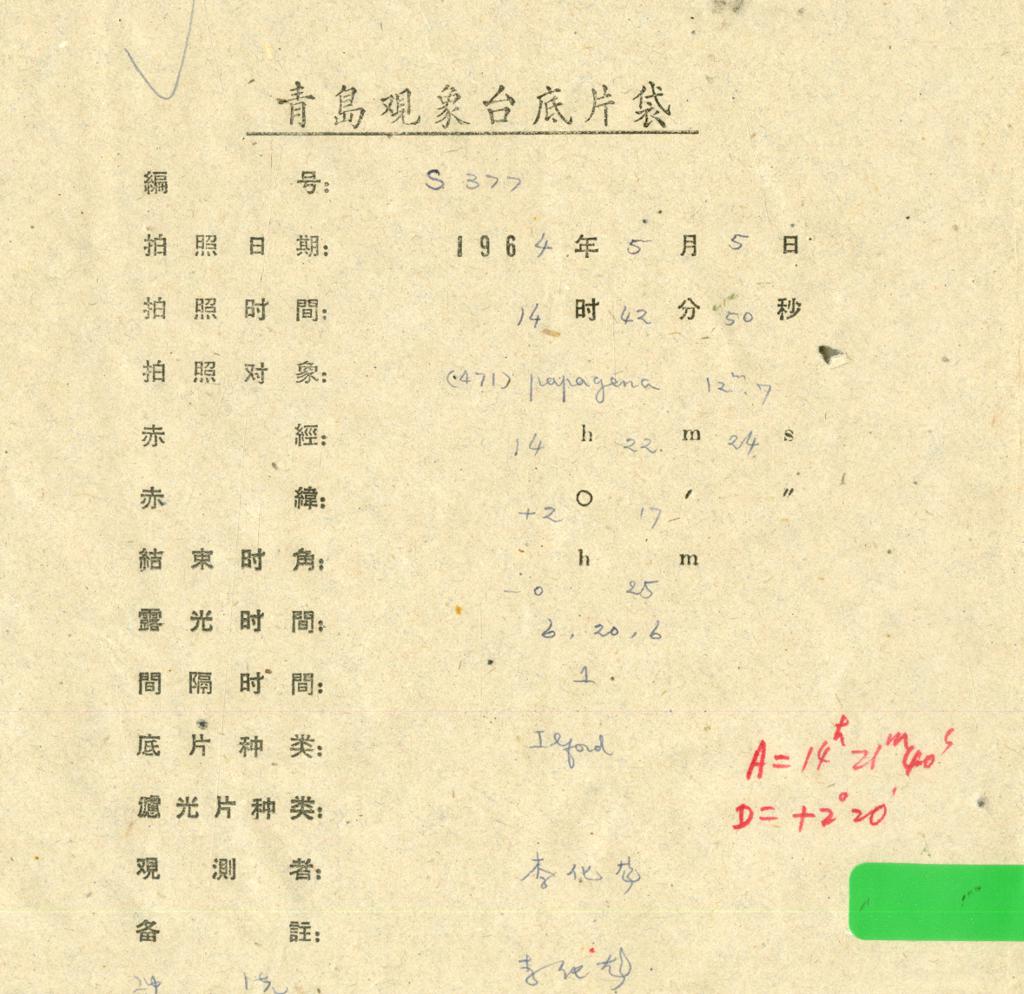 青島观象台底片袋
編号: S 377
拍照日期: 1964年5月5日
拍照时間: 14时42分50秒
拍照对象: (471) papagena 12m.7
赤經: 14h 22m 24s
赤緯: +2° 17′ ″
結束时角: -0h 25m
露光时間: 6.20.6
間隔时間: 1.
底片种类: Ilford
A=14h 21m 40s
D=+2°20′
濾光片种类:
观測者: 李化
备註:
李化